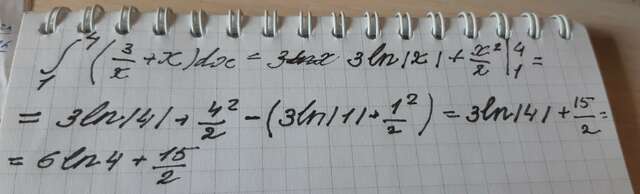 ∫₁⁴ (3/x + x)dx = 3ln|x| + x²/2 |₁⁴ =
= 3ln|4| + 4²/2 - (3ln|1| + 1²/2) = 3ln|4| + 15/2 =
= 6ln4 + 15/2